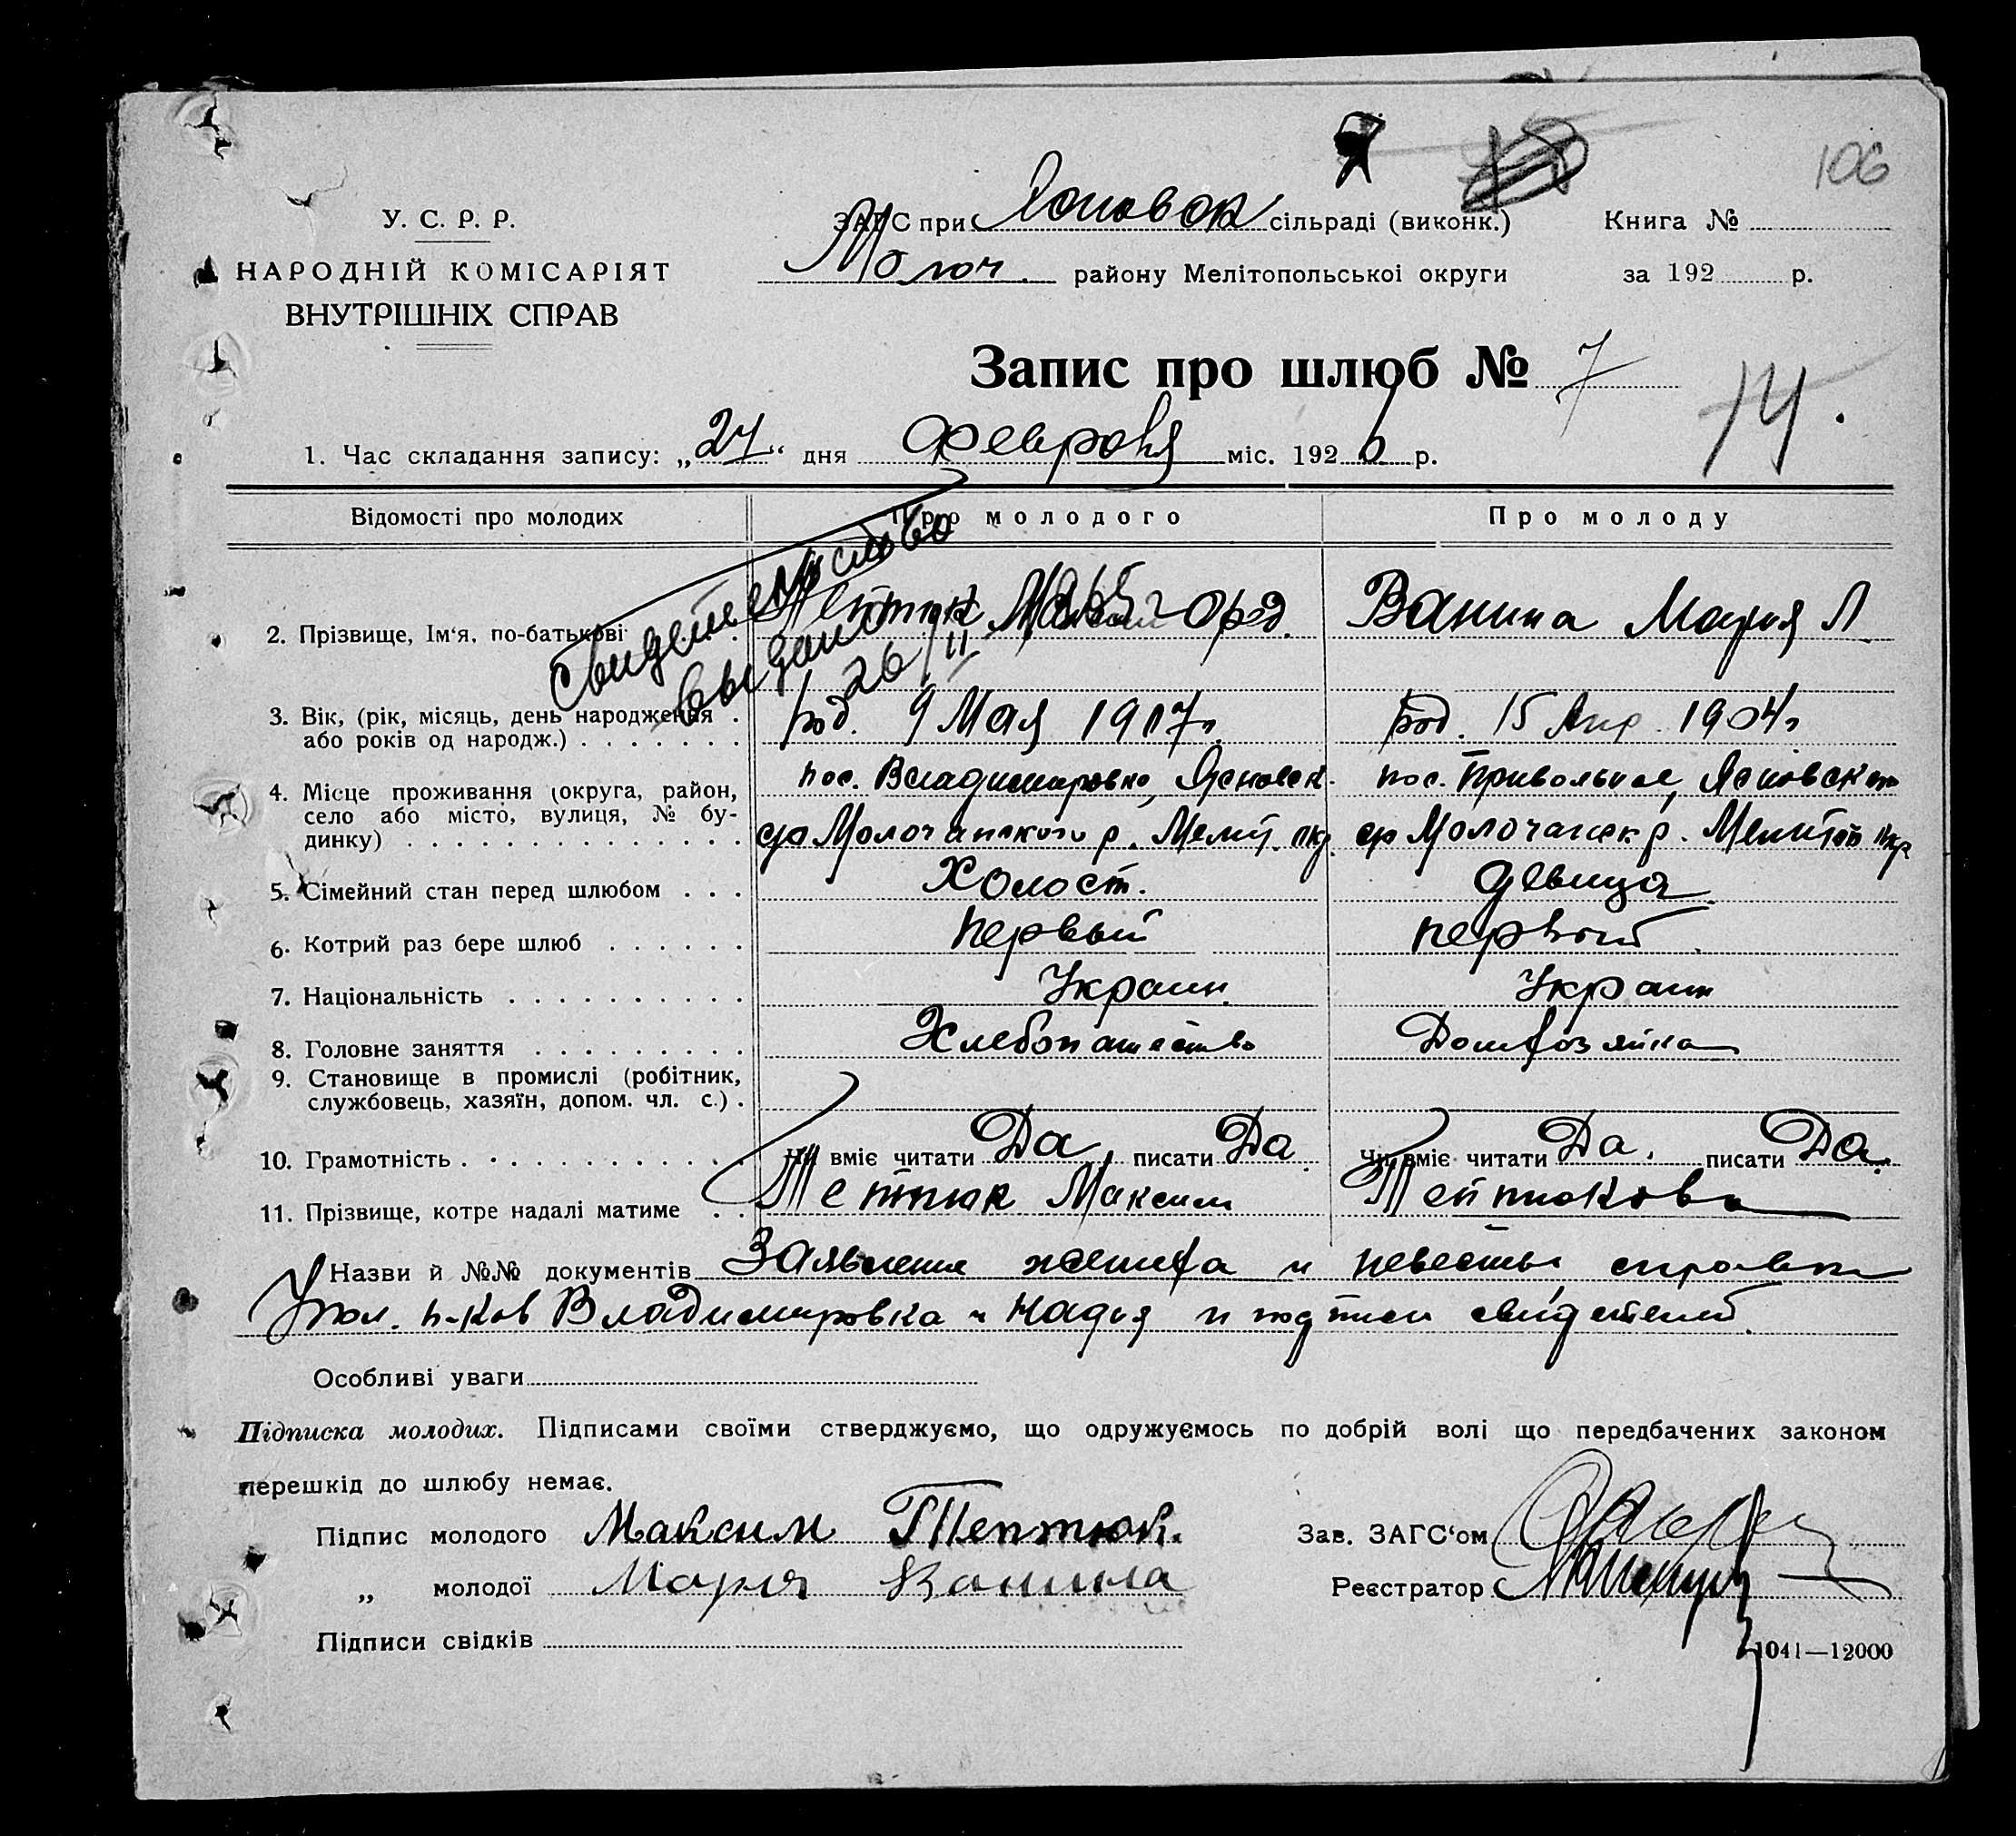 106
У. С. Р. Р.
НАРОДНІЙ КОМІСАРІЯТ
ВНУТРІШНІХ СПРАВ
ЗАГС при Ясновск сільраді (виконк.)
Молоч. району Мелітопольської округи
Книга №
за 192 р.
Запис про шлюб № 7
14.
1. Час складання запису: „27" дня Февраля міс. 1926 р.
Відомості про молодих
Про молодого
Про молоду
Свидетельство
выдано
26/II
2. Прізвище, Ім'я, по-батькові
Тептюк
Ванина Мария Л
3. Вік, (рік, місяць, день народження . род. 9 Мая 1907г. род. 15 Апр. 1904г
або років од народж.)
4. Місце проживання (округа, район, пос. Владимировка, Ясновск. пос. Привольное, Ясновского
село або місто, вулиця, № бу- с/с Молочанского р. Мелит. окр. с/с Молочанск р. Мелитоп окр
динку)
5. Сімейний стан перед шлюбом . . . Холост. девица
6. Котрий раз бере шлюб . . . . . . Первый первый
7. Національність . . . . . . . . . . Украин. Украин
8. Головне заняття . . . . . . . . . Хлебопашество Домхозяйка
9. Становище в промислі (робітник,
службовець, хазяїн, допом. чл. с.) .
10. Грамотність . . . . . . . . . . . Чи вміє читати Да, писати Да. Чи вміє читати Да. писати Да.
11. Прізвище, котре надалі матиме . . Тептюк Максим Тептюкова
Назви й №№ документів Заявления жениха и невесты справки
Упол. п-ков Владимировка и Надья и подписи свидетелей.
Особливі уваги
Підписка молодих. Підписами своїми стверджуємо, що одружуємось по добрій волі що передбачених законом
перешкід до шлюбу немає.
Підпис молодого Максим Тептюк.
„ молодої Мария Ванина
Підписи свідків
Зав. ЗАГС'ом
Реєстратор
1041—12000